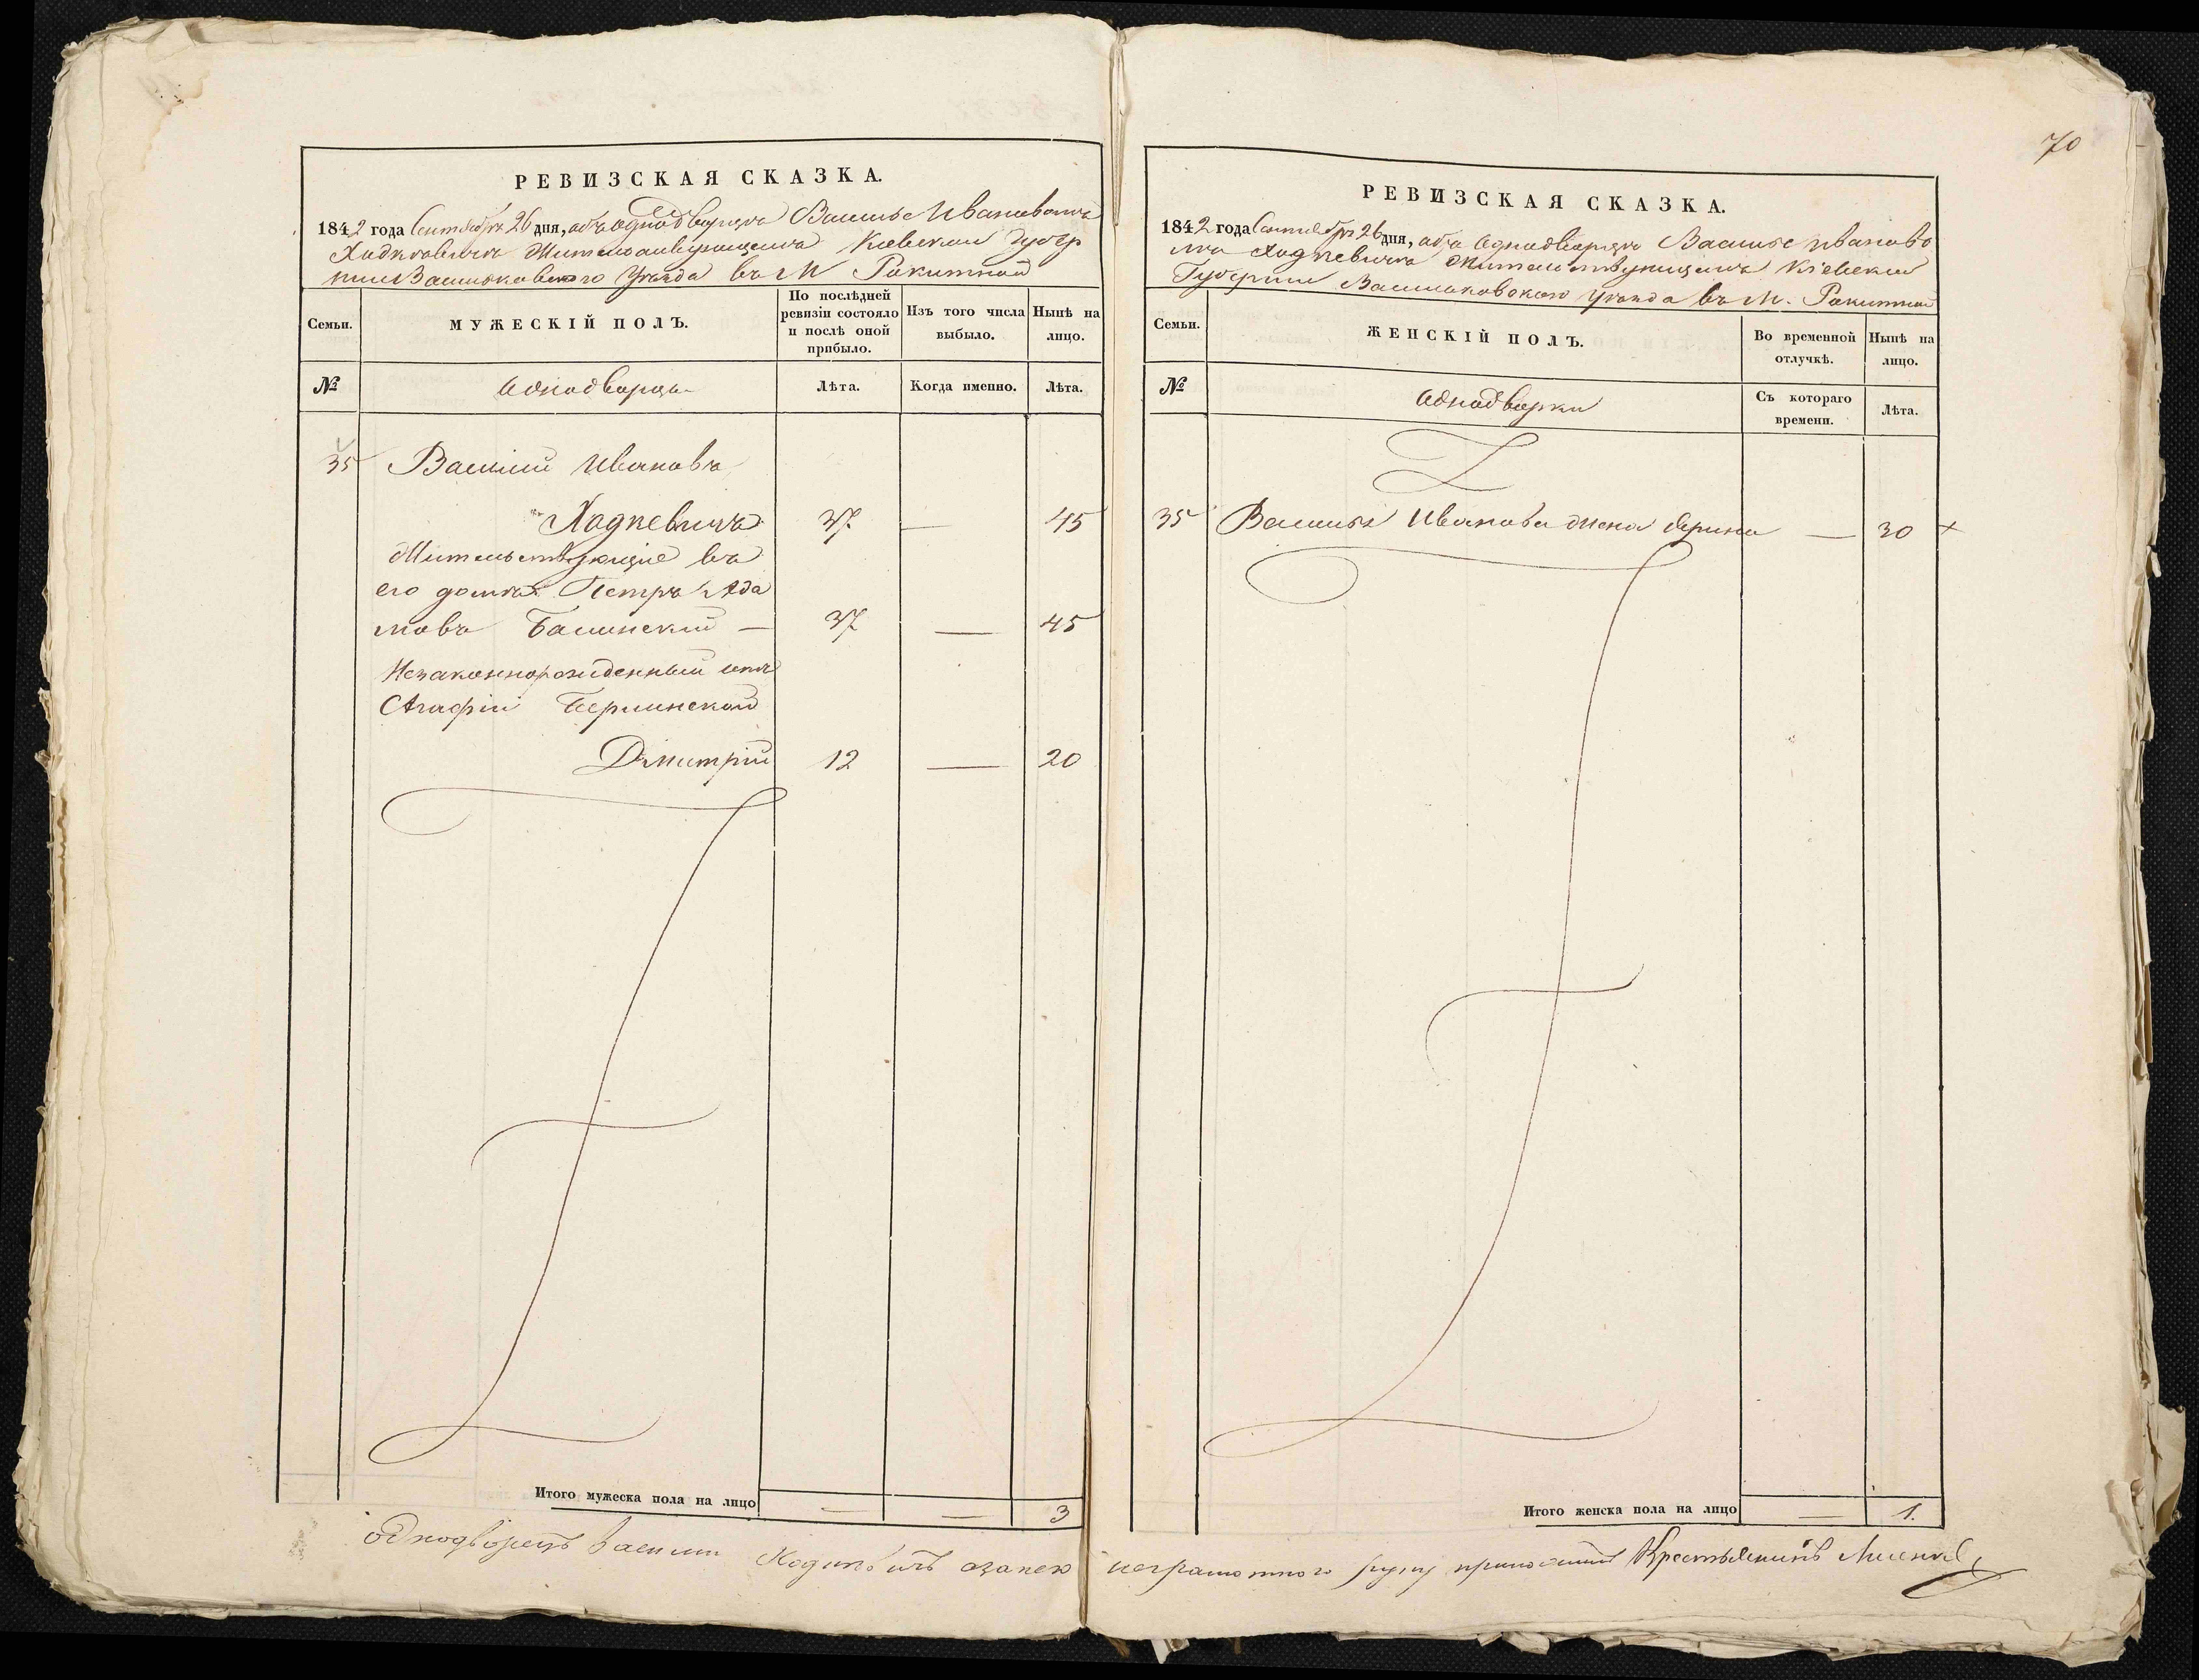 70
РЕВИЗСКАЯ СКАЗКА.
1842 года Сентября 26 дня, объ однодворцѣ Василье Ивановичѣ
Ходкѣвичѣ Жительствующемъ Кіевской Губер
ніи Васильковского Уѣзда въ М Рокитной
Семьи.
МУЖЕСКІЙ ПОЛЪ.
По послѣдней ревизіи состояло и послѣ оной прибыло.
Изъ того числа выбыло.
Нынѣ на лицо.
№
Однодворцы
Лѣта.
Когда именно.
Лѣта.
35 Василій Ивановъ
Ходкевичъ 37 — 45
Жительствующіе въ
его домѣ Петръ Ада
мовъ Балинскій — 37 — 45
Незаконнорожденный сынъ
Агафіи Берлинской
Дмитрій 12 — 20
Итого мужеска пола на лицо — — 3
РЕВИЗСКАЯ СКАЗКА.
1842 года Сентября 26 дня, объ Однодворцѣ Василье Иванови
чѣ Ходкевичѣ Жительствующемъ Кіевской
Губерніи Васильковского Уѣзда въ М. Рокитной
Семьи.
ЖЕНСКІЙ ПОЛЪ.
Во временной отлучкѣ.
Нынѣ на лицо.
№
Однодворки
Съ котораго времени.
Лѣта.
35 Василья Иванова жена Арина — 30 +
Итого женска пола на лицо — 1.
однодворецъ Василий Ходкѣвичъ а за него неграмотного руку приложилъ Крестьянинъ